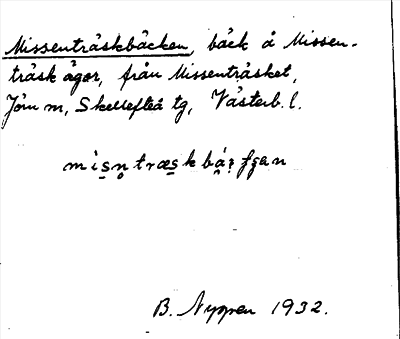 Missenträskbäcken, bäck å Missen-
träsk ägor, från Missenträsket,
Jörn sn, Skellefteå tg, Västerb. l.
B. Nyppen 1932.